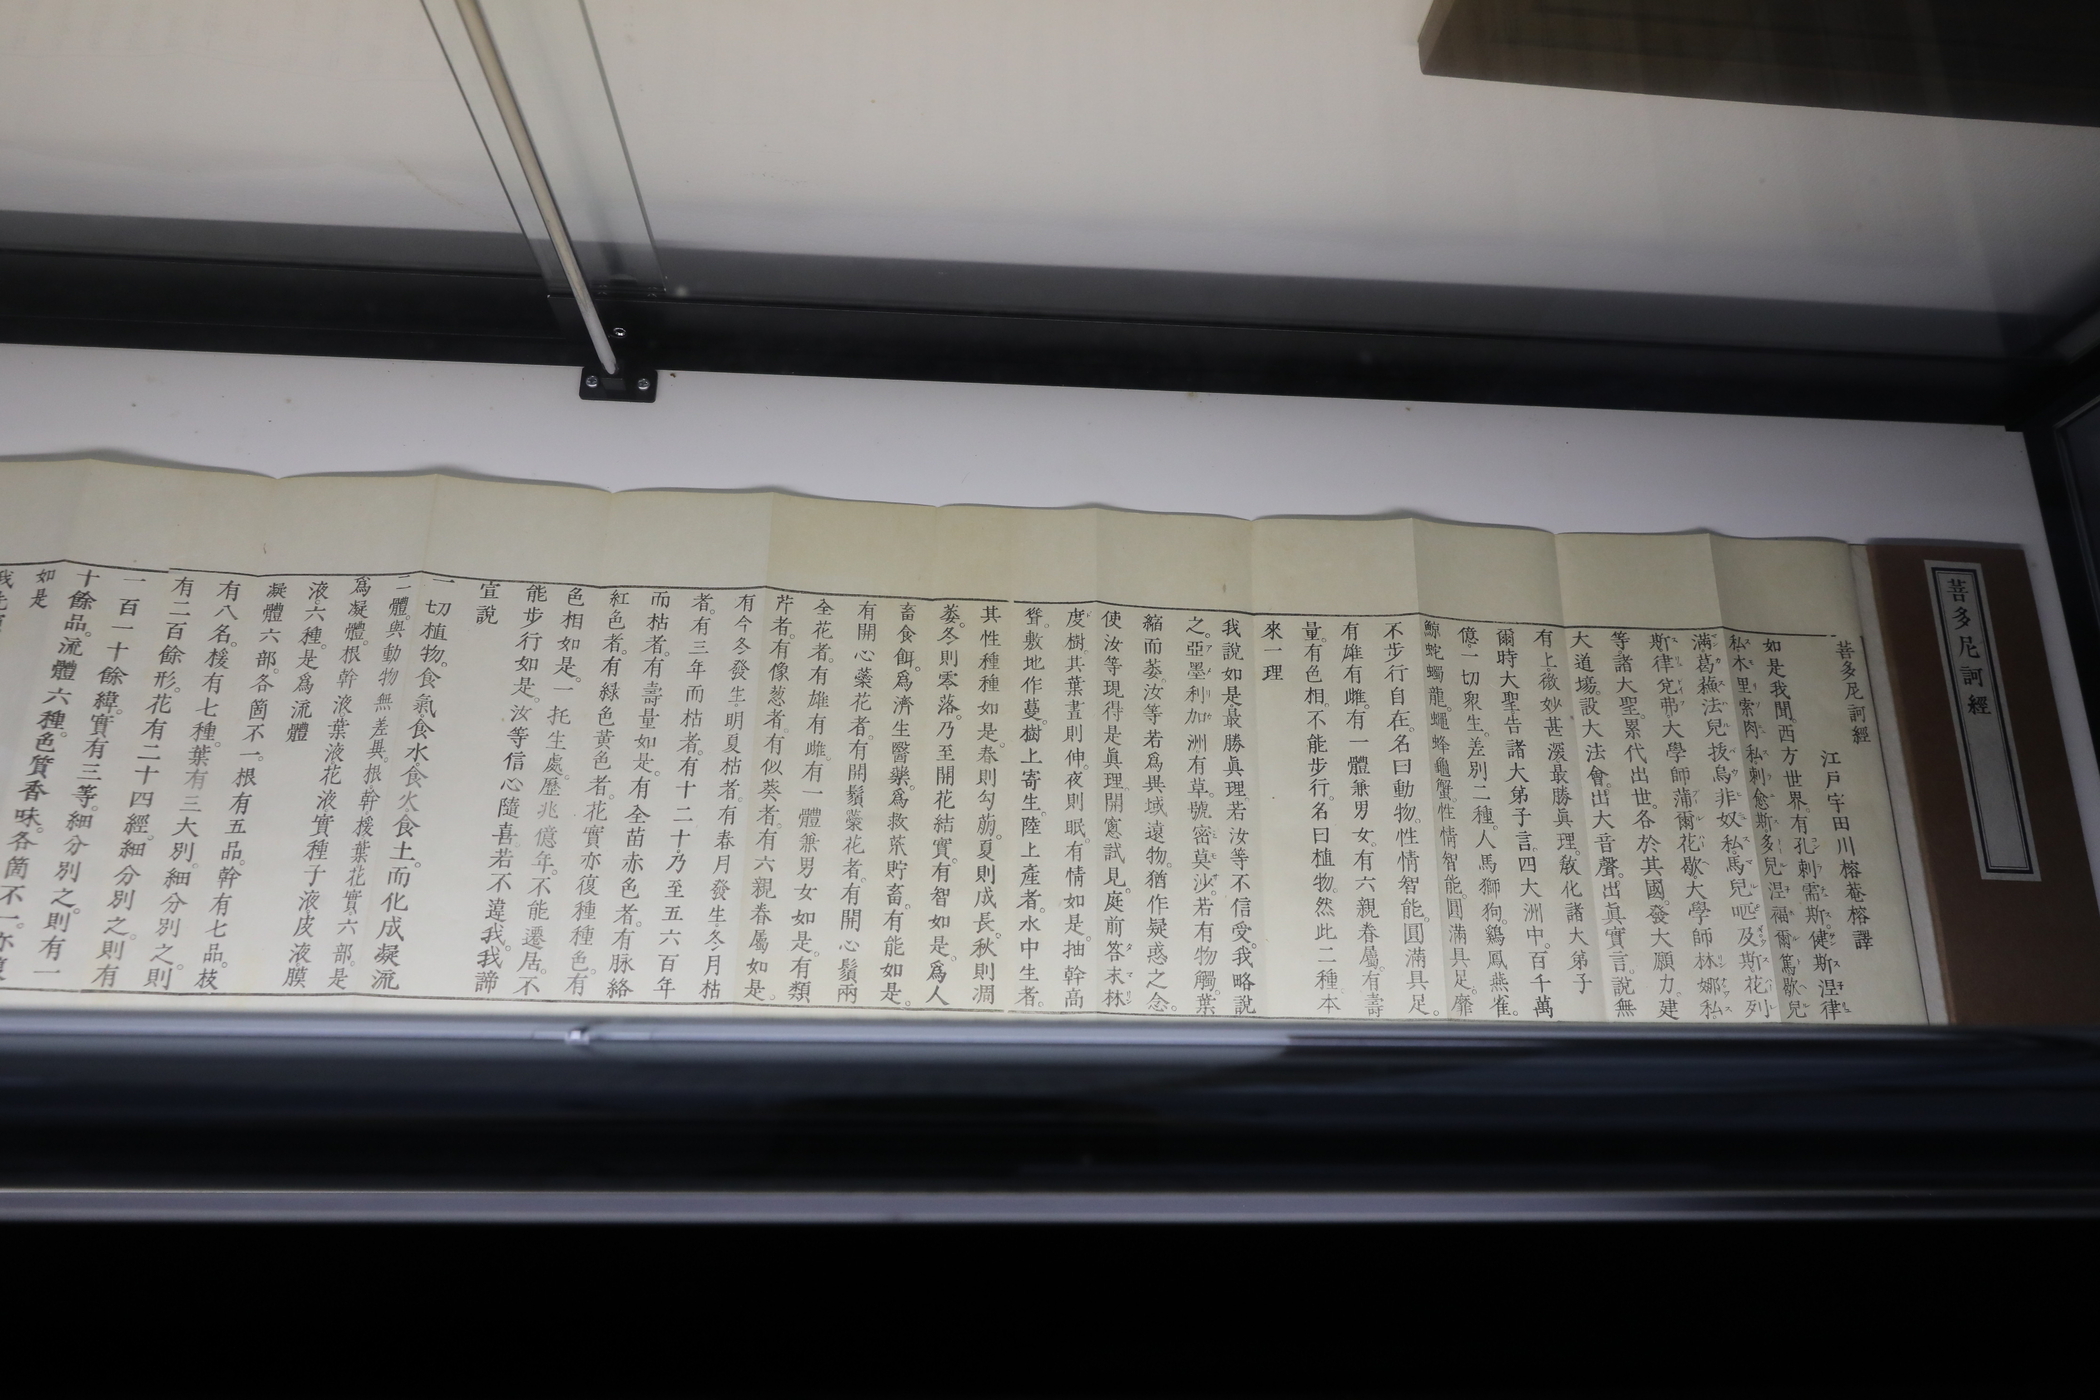 菩多尼訶經
菩多尼訶經
江戸宇田川榕菴榕譯
如是我聞。西方世界。有孔刺需斯。健斯涅律
私木里索肉私刺愈斯多兒涅福爾篤歇兒
滿葛蘓法兒抜烏非奴私馬兒呬及斯花列
斯律兊弗大學師蒲爾花歇大學師林娜私。
等。諸大聖。累代出世。各於其國。發大願力。建
大道場。設大法會。出大音聲。出眞實言。説無
有上。微妙甚深最勝眞理。敎化諸大弟子
爾時大聖告諸大弟子言。四大洲中。百千萬
億。一切衆生。差別二種。人馬獅狗。鷄鳳燕雀。
鯨蛇蠋龍。蠅蜂龜蟹。性情智能。圓滿具足。靡
不步行自在。名曰動物。性情智能。圓滿具足。
有雄有雌。有一體兼男女。有六親眷屬。有壽
量。有色相。不能步行。名曰植物。然此二種本
來一理
我説如是最勝眞理。若汝等不信受。我略説
之。亞墨利加洲有草。號密莫沙。若有物觸。葉
縮而萎。汝等若爲異域遠物。猶作疑惑之念。
使汝等現得是眞理。開窻試見。庭前答末林
度樹。其葉晝則伸。夜則眠。有情如是。抽幹高
聳。敷地作蔓。樹上寄生。陸上產者。水中生者。
其性種種如是。春則勾萠。夏則成長。秋則凋
萎。冬則零落。乃至開花結實。有智如是。爲人
畜食餌。爲濟生醫藥。爲救荒貯畜。有能如是。
有開心蘂花者。有開鬚蘂花者。有開心鬚兩
全花者。有雄有雌。有一體兼男女如是。有類
芹者。有像葱者。有似葵者。有六親眷屬如是。
有今冬發生。明夏枯者。有春月發生。冬月枯
者。有三年而枯者。有十二十乃至五六百年
而枯者。有壽量如是。有全苗赤色者。有脉絡
紅色者。有緑色黄色者。花實亦復種種色。有
色相如是。一托生處。歷兆億年。不能遷居。不
能步行如是。汝等信心隨喜。若不違我。我諦
宣説
一切植物。食氣。食水。食火。食土。而化成凝流
二體。與動物無差異。根。幹。椄。葉。花。實。六部。是
爲凝體。根幹液葉液花液實種子液皮液膜
液。六種。是爲流體
凝體六部。各箇不一。根有五品。幹有七品。枝
有八名。椄有七種。葉有三大別。細分別之。則
有二百餘形。花有二十四經。細分別之。則有
一百一十餘緯。實有三等。細分別之。則有一
十餘品。流體六種。色質香味。各箇不一。亦復
如是